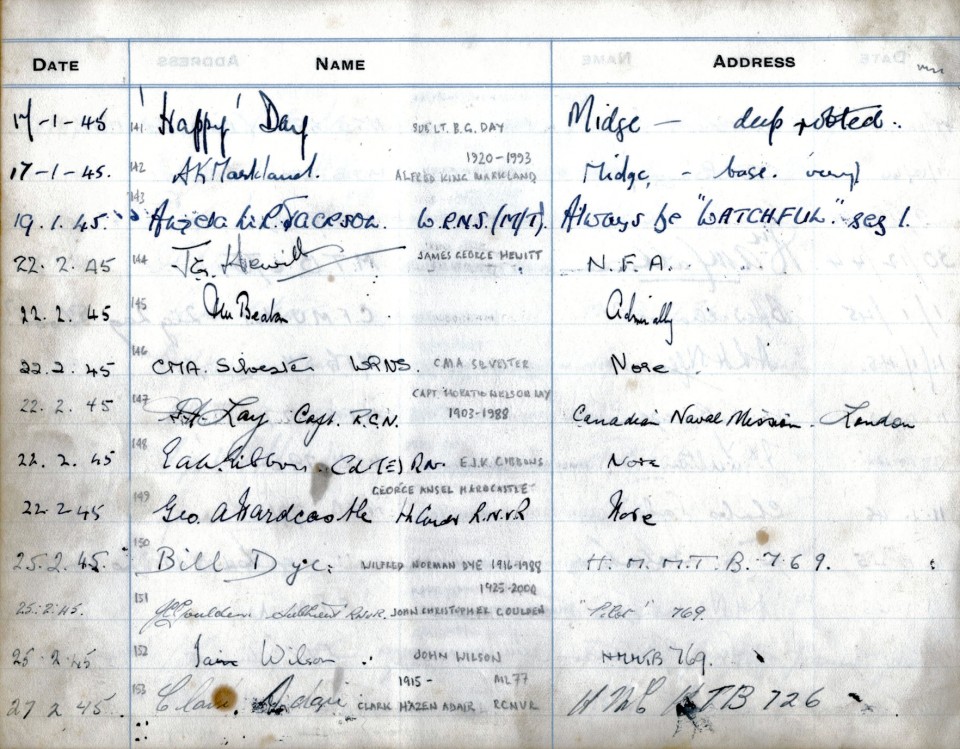 DATE NAME ADDRESS
17-1-45 141 'Happy' Day SUB LT. B.G. DAY Midge — deep rooted.
1920-1993
17-1-45. 142 AK Markland. ALFRED KING MARKLAND Midge, - base. very
19.1.45. 143 Angela Jackson. W.R.N.S. (M/T). Always be "WATCHFUL". seg 1.
22.2.45 144 J.G. Hewitt JAMES GEORGE HEWITT N.F.A.
22.2.45 145 Beaton Admiralty
22.2.45 146 CMA. Silvester WRNS. CMA SILVESTER Nore
CAPT. HORATIO NELSON LAY
22.2.45 147 Lay Capt. R.C.N. 1903-1988 Canadian Naval Mission. London
22.2.45 148 Gibbons. Cdr (E) RN. E.J.K. GIBBONS Nore
GEORGE ANSEL HARDCASTLE
22.2.45 149 Geo. A Hardcastle R.N.R Nore
25.2.45. 150 Bill Dye. WILFRED NORMAN DYE 1916-1988 H.M.M.T.B. 769.
1925-2000
25.2.45. 151 JCGoulden SubLieut R.N.V.R. JOHN CHRISTOPHER GOULDEN "Pilot" 769.
25.2.45 152 Iain Wilson JOHN WILSON HMMTB 769.
1915- ML77
27.2.45. 153 Clark Adair CLARK HAZEN ADAIR RCNVR HMC MTB 726